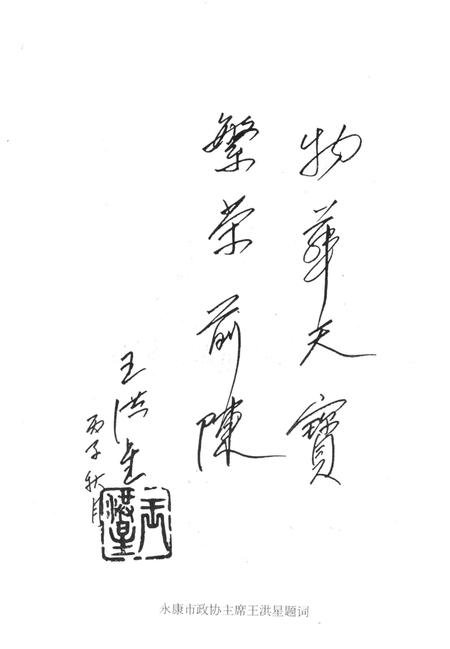 物华天寳
繁荣前陳
王洪星
丙子秋月
王洪星
永康市政协主席王洪星题词